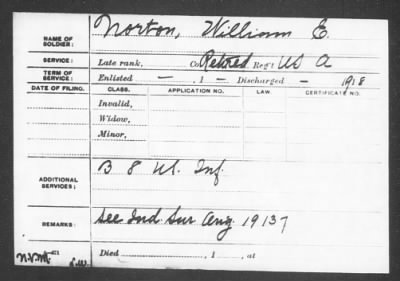 NAME OF SOLDIER: Norton, William E.
SERVICE: Late rank, Co. Retired Reg't US A
TERM OF SERVICE: Enlisted — , 1 — Discharged — 1918
DATE OF FILING. CLASS. APPLICATION NO. LAW. CERTIFICATE NO.
Invalid,
Widow,
Minor,
ADDITIONAL SERVICES: B 8 U.S. Inf.
REMARKS: See Ind. Sur Orig. 19137
Died , 1 , at